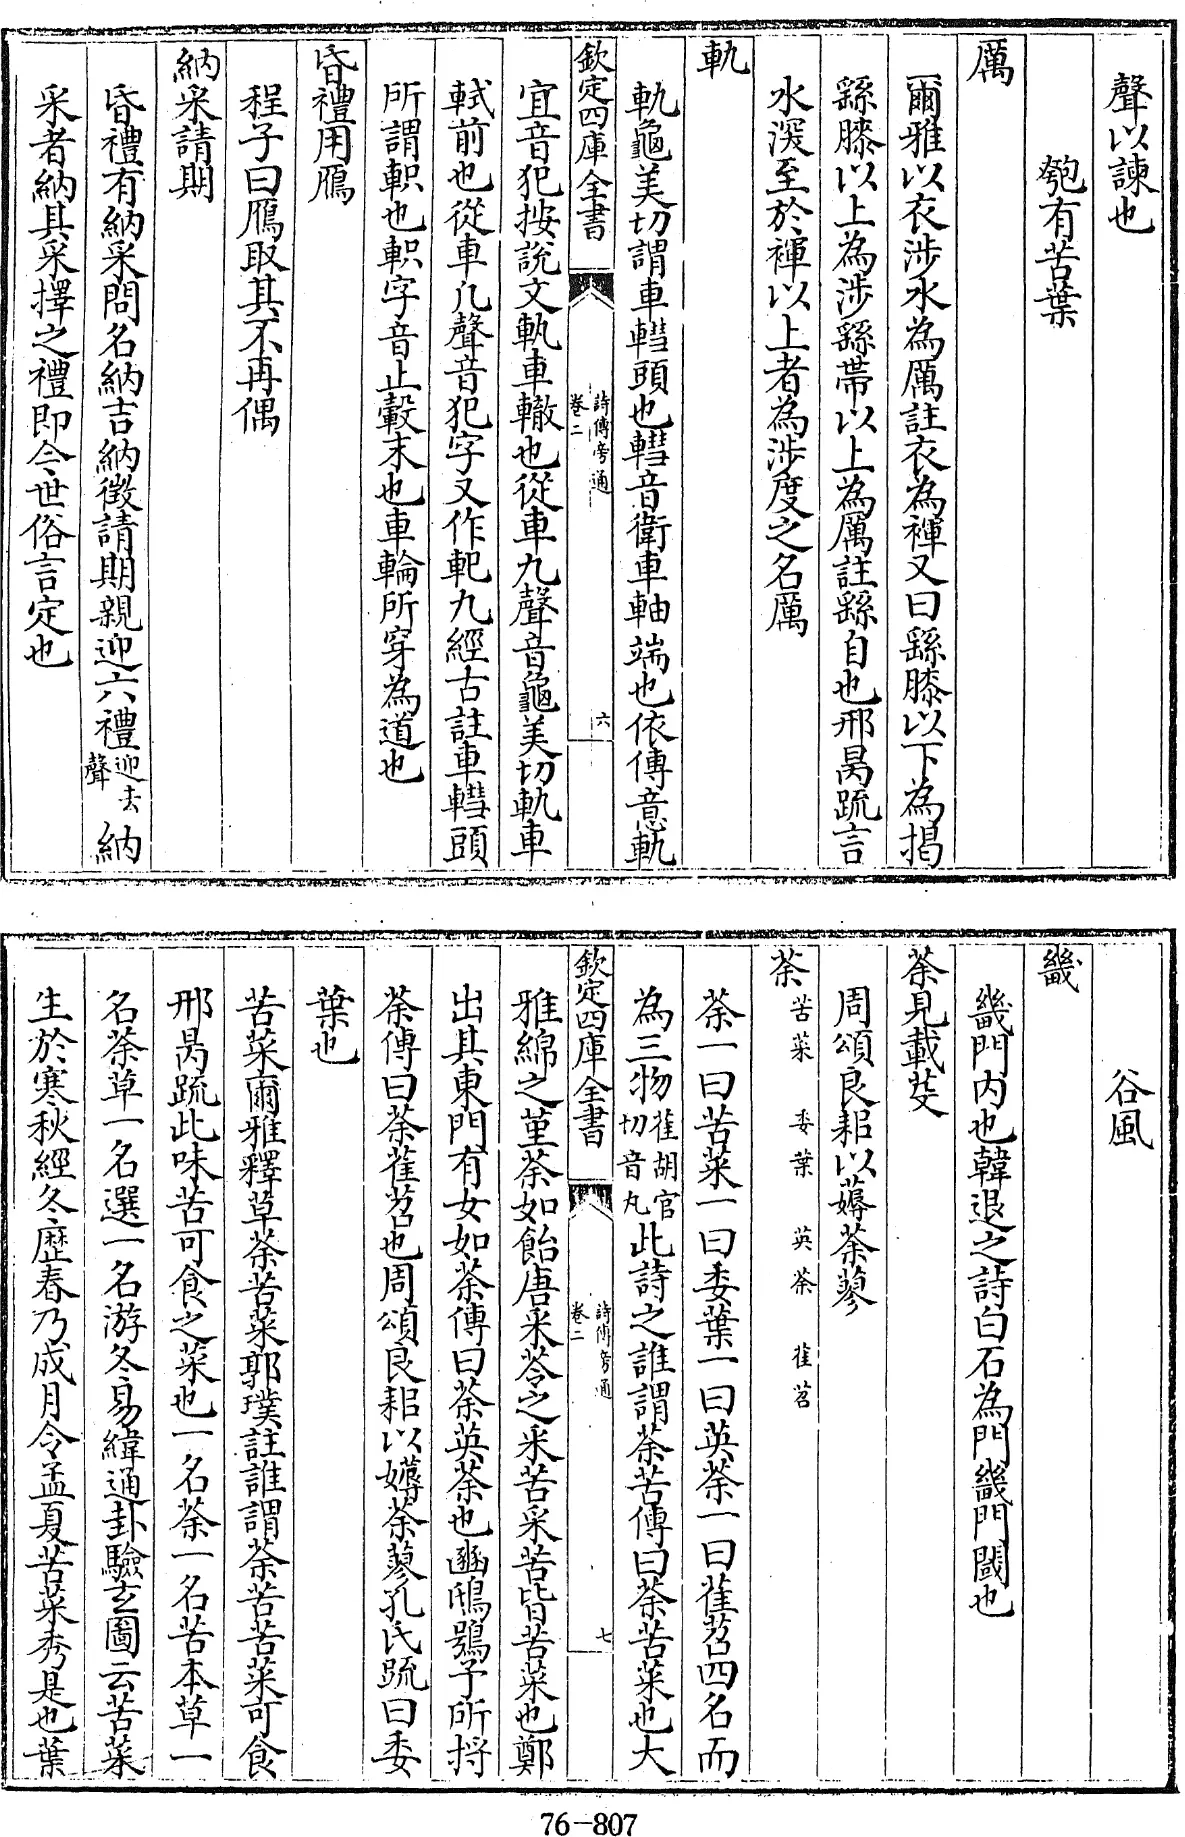 聲以諫也
匏有苦葉
厲
爾雅以衣涉水為厲註衣為褌又曰繇膝以下為揭
繇膝以上為涉繇帶以上為厲註繇自也邢昺疏言
水深至於褌以上者為涉度之名厲
軌
軌龜美切謂車轊頭也轊音衛車軸端也依傳意軌
欽定四庫全書
詩傳旁通
卷二
六
宜音犯按說文軌車轍也從車九聲音龜美切軓車
軾前也從車凡聲音犯字又作䡊九經古註車轊頭
所謂軹也軹字音止轂末也車輪所穿為道也
昏禮用鴈
程子曰鴈取其不再偶
納采請期
昏禮有納采問名納吉納徵請期親迎六禮迎去聲納
采者納其采擇之禮即今世俗言定也
谷風
畿
畿門内也韓退之詩白石為門畿門閾也
荼見載芟
周頌良耜以薅荼蓼
荼 苦菜 委葉 英荼 萑苕
荼一曰苦菜一曰委葉一曰英荼一曰萑苕四名而
為三物萑胡官切音丸此詩之誰謂荼苦傳曰荼苦菜也大
欽定四庫全書
詩傳旁通
卷二
七
雅綿之堇荼如飴唐采苓之采苦采苦皆苦菜也鄭
出其東門有女如荼傳曰荼英荼也豳鴟鴞予所捋
荼傳曰荼萑苕也周頌良耜以薅荼蓼孔氏疏曰委
葉也
苦菜爾雅釋草荼苦菜郭璞註誰謂荼苦苦菜可食
邢昺疏此味苦可食之菜也一名荼一名苦本草一
名荼草一名選一名游冬易緯通卦驗玄圖云苦菜
生於寒秋經冬歷春乃成月令孟夏苦菜秀是也葉
76-807